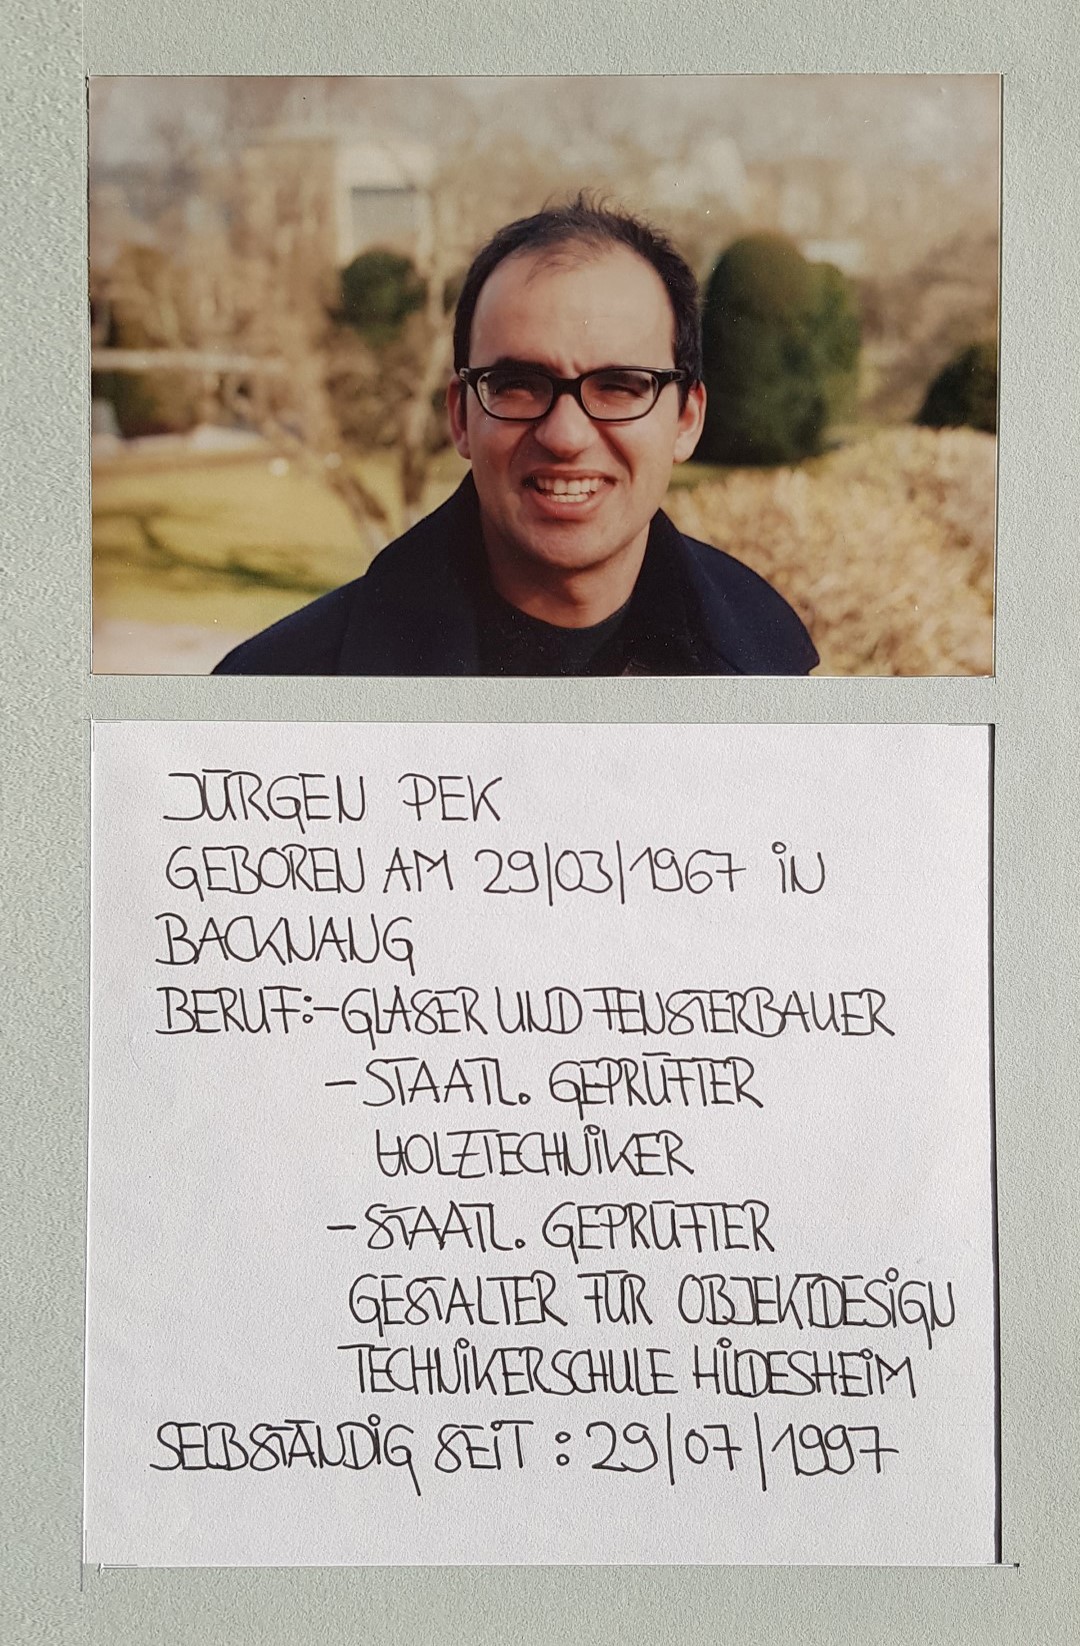 JÜRGEN PEK
GEBOREN AM 29/03/1967 IN
BACKNANG
BERUF:-GLASER UND FENSTERBAUER
- STAATL. GEPRÜFTER
HOLZTECHNIKER
- STAATL. GEPRÜFTER
GESTALTER FÜR OBJEKTDESIGN
TECHNIKERSCHULE HILDESHEIM
SELBSTÄNDIG SEIT : 29/07/1997